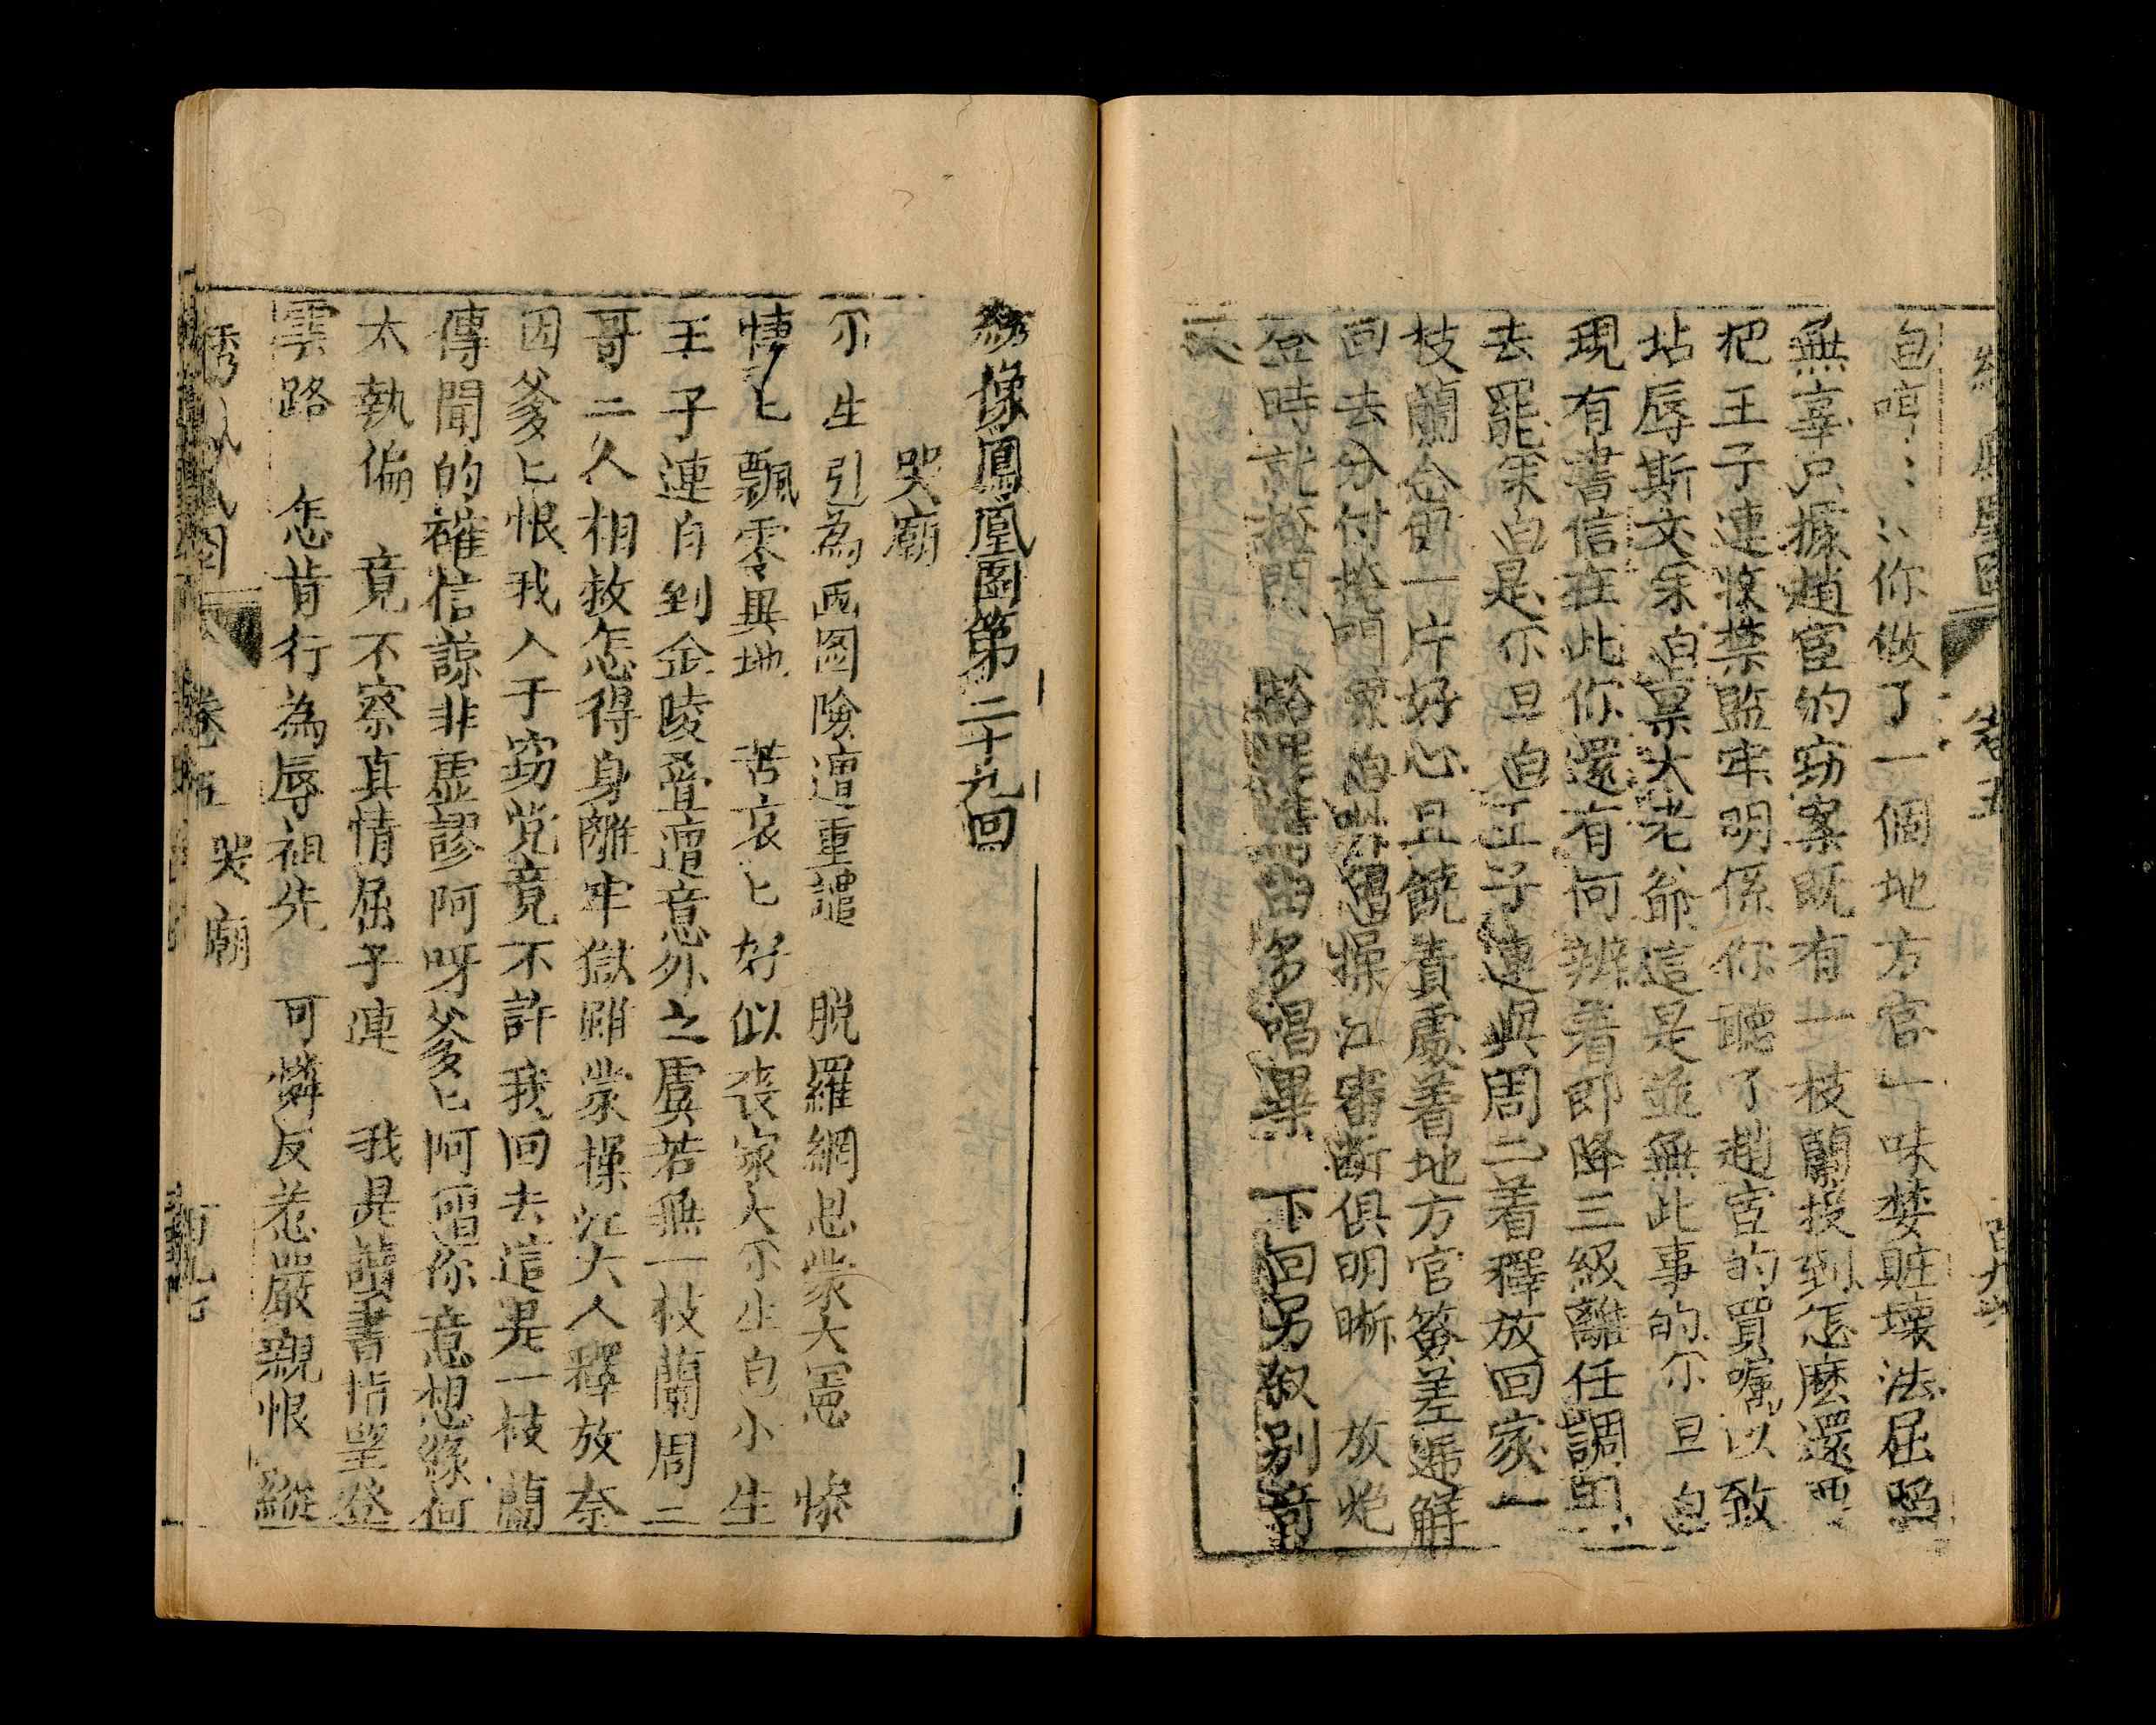 包哼⺀⺀你做了一個地方官一味婪賍壞法屈陷
無辜只據趙宦的窃案既有一枝蘭投到怎麽還要
把王子連收禁監牢明係你聽了趙宦的買嘱以致
坫辱斯文末白禀大老爺這是並無此事的尒旦白
現有書信在此你還有何辨着即降三級離任調用
去罷末白是尒旦白王子連與周二着釋放回家一
枝蘭念尔一片好心且饒責處着地方官簽差遞解
回去分付掩門末白吓操江審断俱明晰 放炮
登時就掩門 唱畢 下回另叙別奇
文
綉像鳳凰圖第二十九回
哭廟
尒生引為画图險遭重譴 脱羅網恩蒙大憲 慘
悽〻飄零異地 苦哀〻好似喪家犬尒生白小生
王子連自到金陵叠遭意外之虞若無一枝蘭周二
哥二人相救怎得身離牢獄雖蒙操江大人釋放奈
因爹〻恨我入于窃党竟不許我回去這是一枝蘭
傳聞的確信諒非虚謬阿呀爹〻阿唱你意想緣何
太執偏 竟不察真情屈子連 我是讀書指望登
雲路 怎肯行為辱祖先 可憐反惹嚴親恨 縱
卷五 哭廟